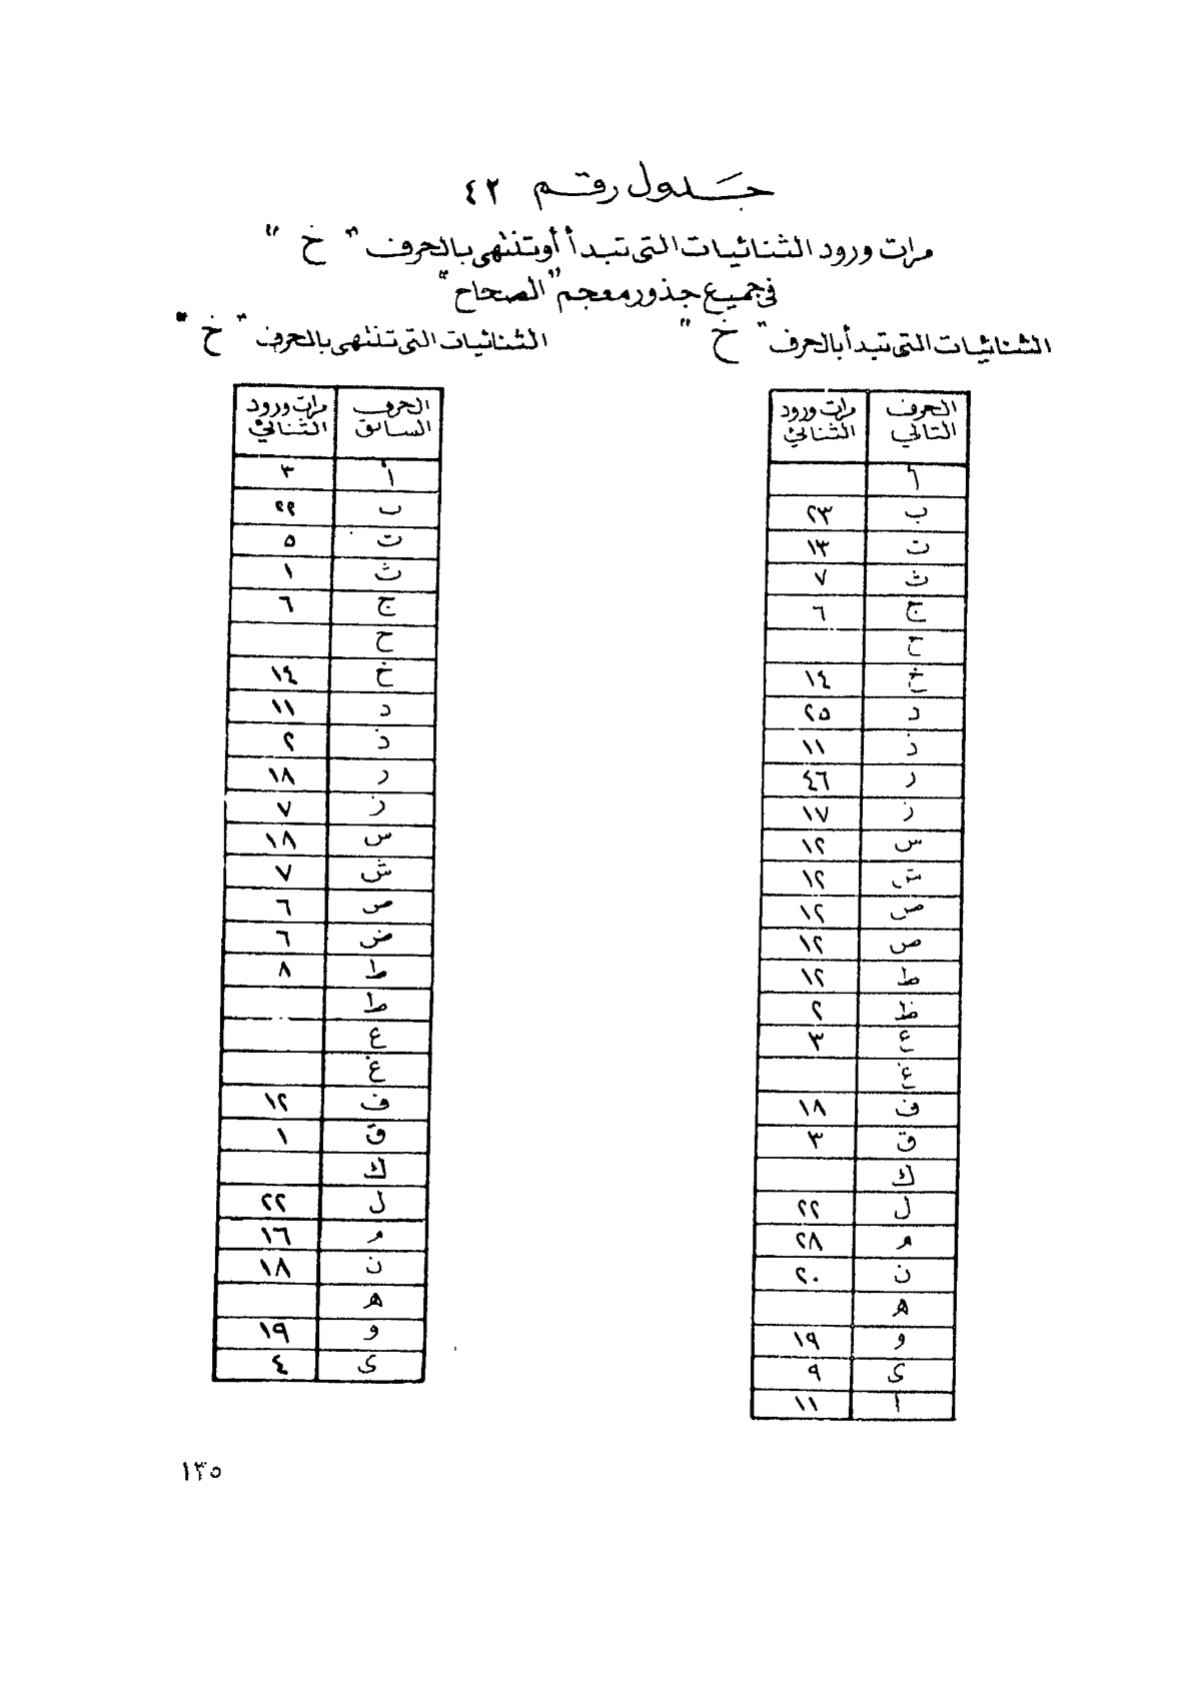 جدول رقم ٤٢
مرات ورود الثنائيات التى تبدأ أو تنتهى بالحرف " خ "
فى جميع جذور معجم "الصحاح"
الثنائيات التى تبدأ بالحرف " خ "
الحرف التالي مرات ورود الثنائي
أ
ب ٢٣
ت ١٣
ث ٧
ج ٦
ح
خ ١٤
د ٢٥
ذ ١١
ر ٤٦
ز ١٧
س ١٢
ش ١٢
ص ١٢
ص ١٢
ط ١٢
ظ ٢
ع ٣
غ
ف ١٨
ق ٣
ك
ل ٢٢
م ٢٨
ن ٢٠
ه
و ١٩
ى ٩
ا ١١
الثنائيات التى تنتهى بالحرف " خ "
الحرف السابق مرات ورود الثنائي
أ ٣
ب ٢٢
ت ٥
ث ١
ج ٦
ح
خ ١٤
د ١١
ذ ٢
ر ١٨
ز ٧
س ١٨
ش ٧
ص ٦
ض ٦
ط ٨
ط
ع
غ
ف ١٢
ق ١
ك
ل ٢٢
م ١٦
ن ١٨
ه
و ١٩
ى ٤
١٣٥